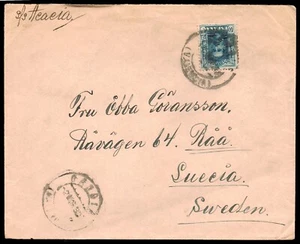 s/s Acacia
Fru Ebba Göransson.
Råvägen 64. Råå.
Suecia
Sweden.